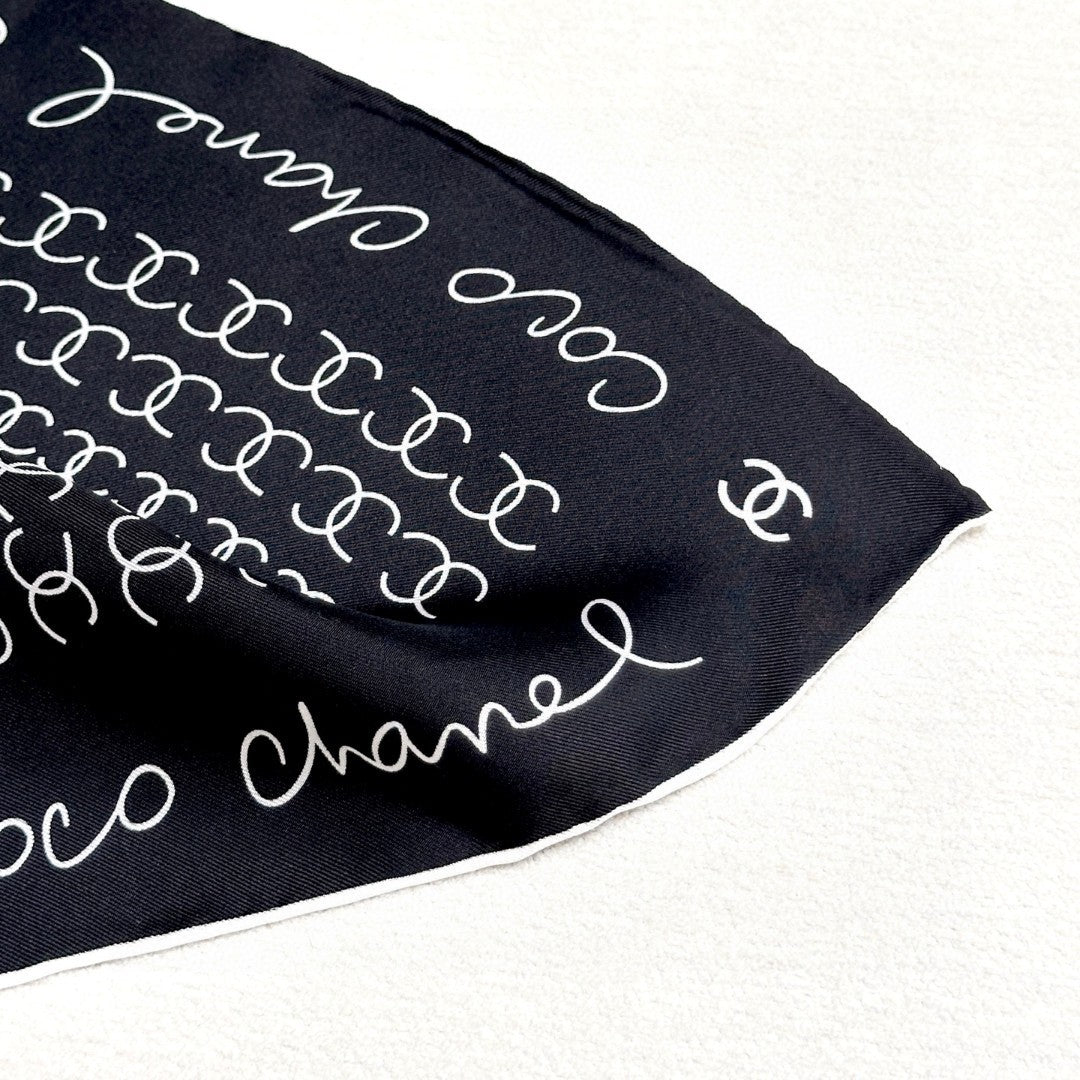 Coco Chanel
coco chanel